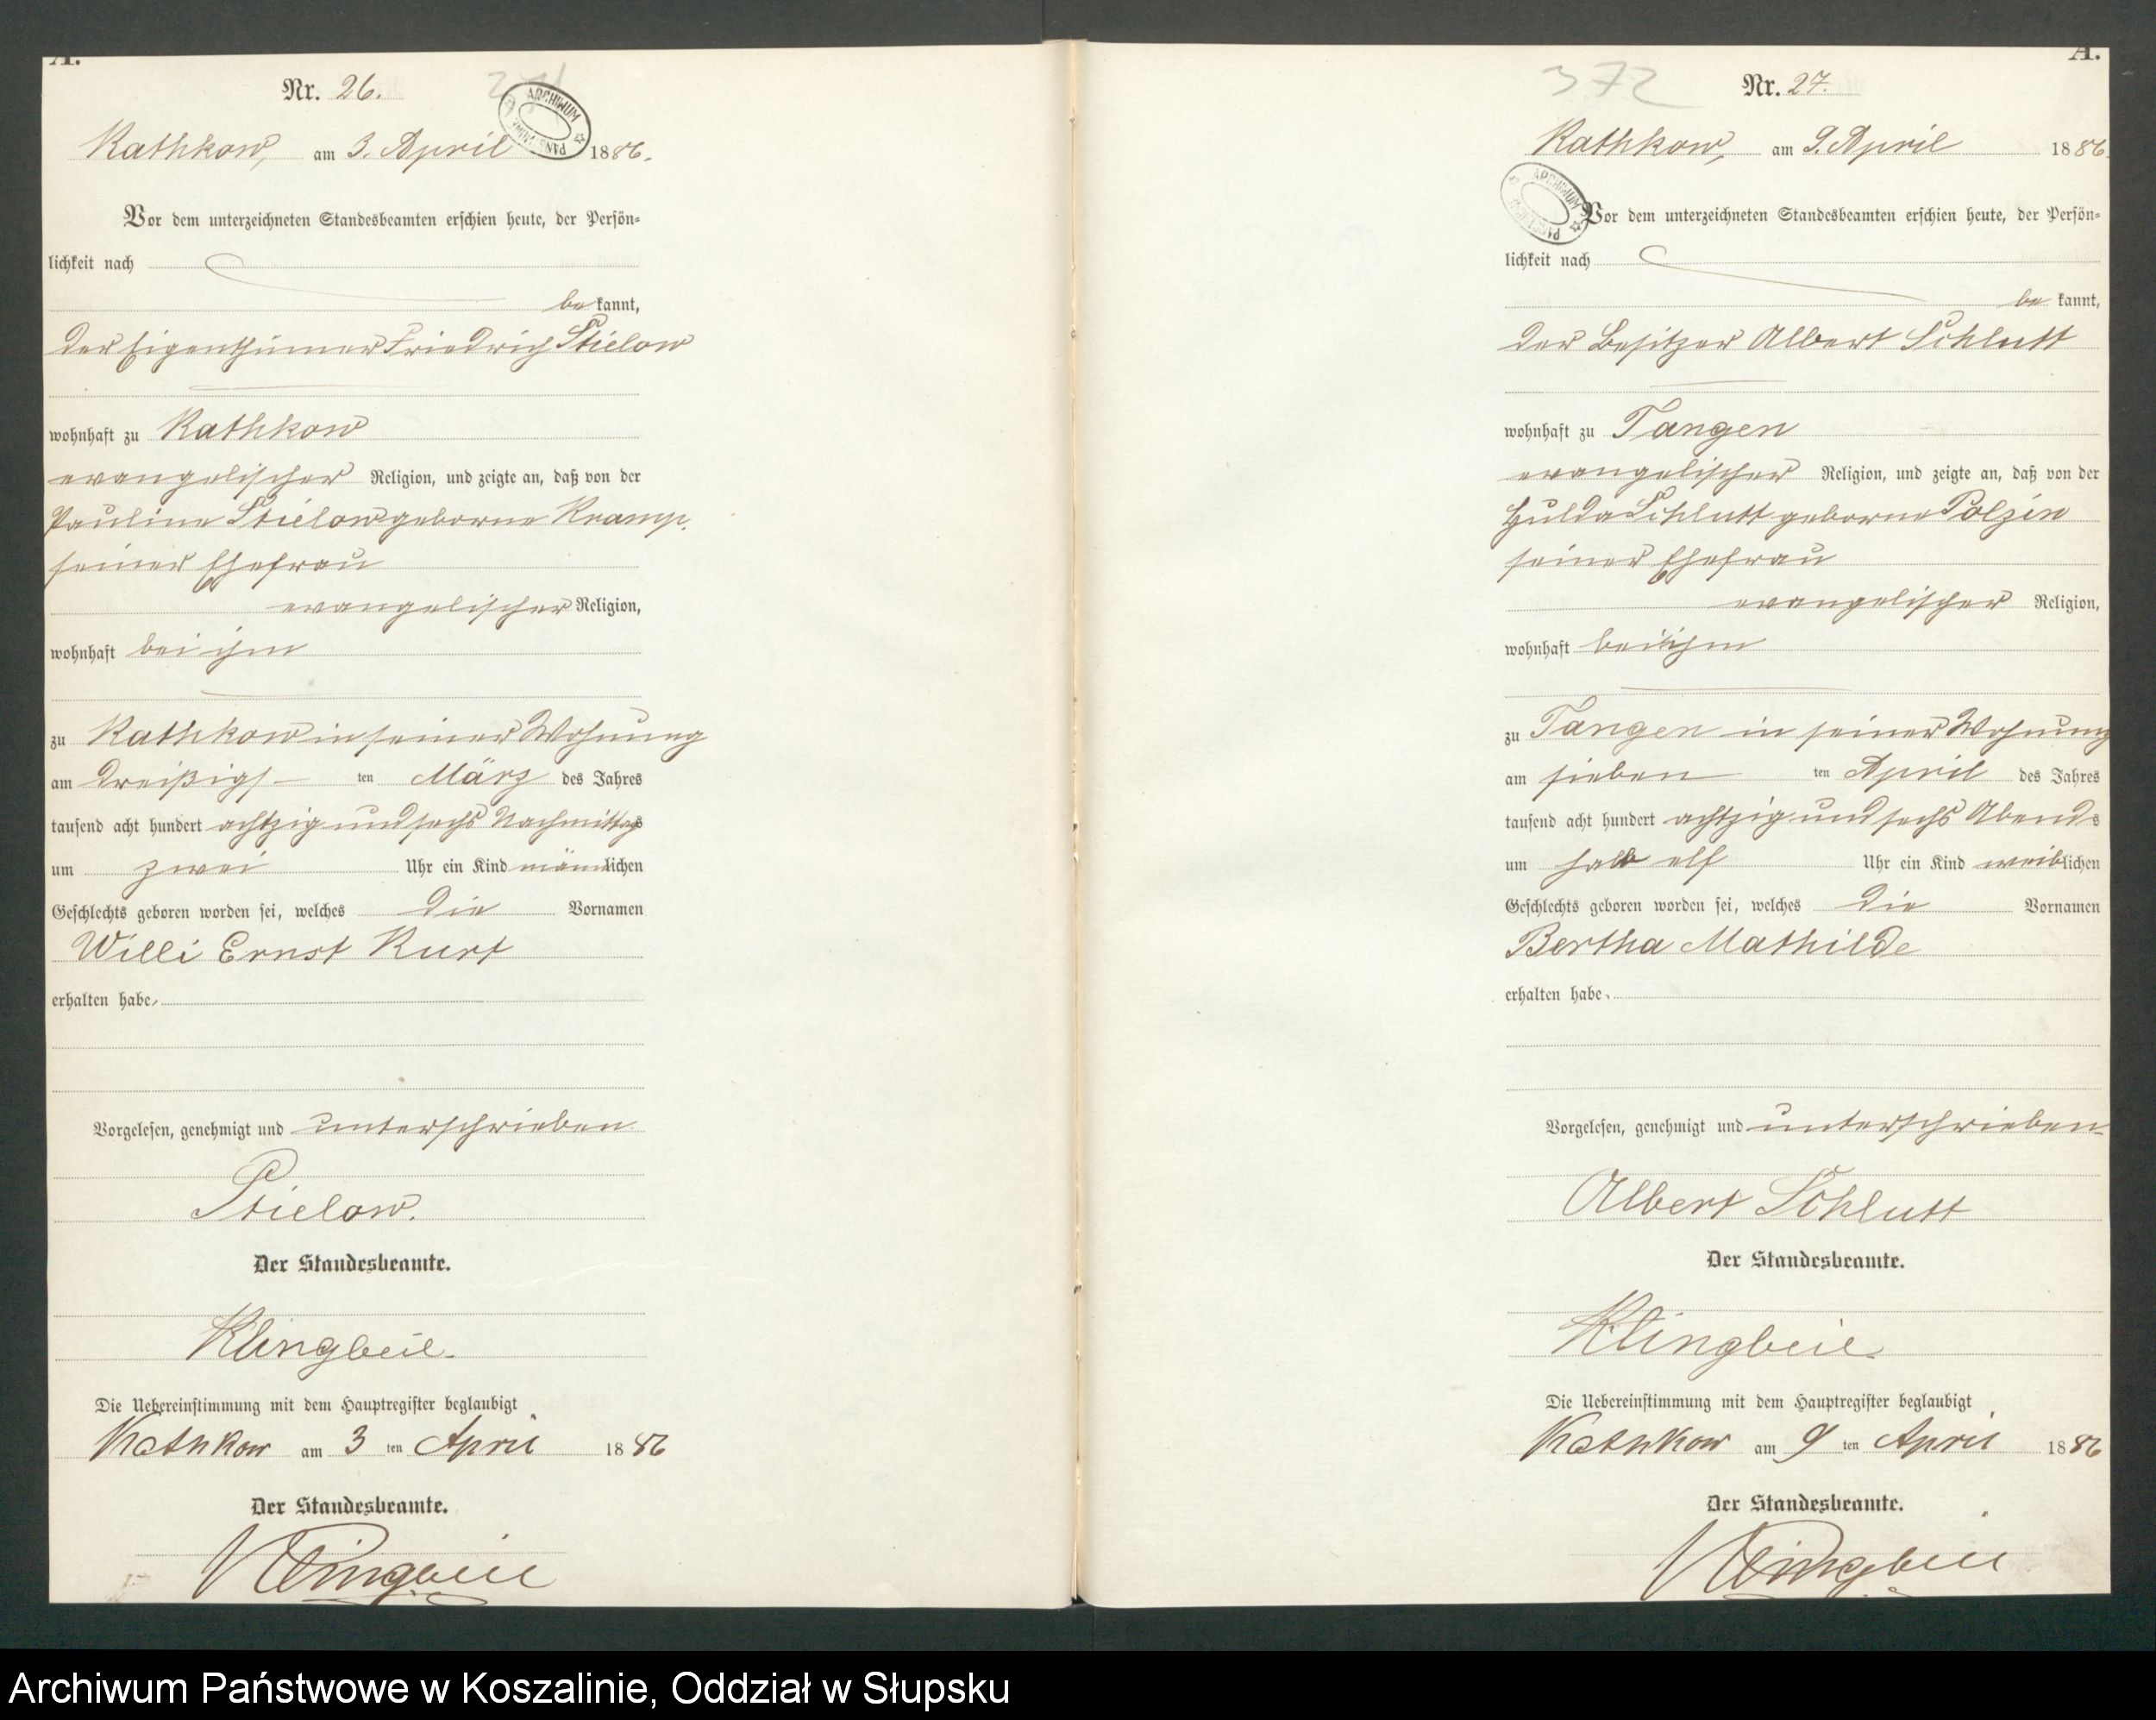 A.
Nr. 26.
Kathkow, am 3. April 1886.
ARCHIWUM
Vor dem unterzeichneten Standesbeamten erschien heute, der Persön-
lichkeit nach
be kannt,
der Eigenthümer Friedrich Stielow
wohnhaft zu Kathkow
evangelischer Religion, und zeigte an, daß von der
Pauline Stielow geborne Kramp,
seiner Ehefrau
evangelischer Religion,
wohnhaft bei ihm
zu Kathkow in seiner Wohnung
am dreißigs ten März des Jahres
tausend acht hundert achtzig und sechs Nachmittags
um zwei Uhr ein Kind männlichen
Geschlechts geboren worden sei, welches die Vornamen
Willi Ernst Kurt
erhalten habe.
Vorgelesen, genehmigt und unterschrieben
Stielow.
Der Standesbeamte.
Klingbeil.
Die Uebereinstimmung mit dem Hauptregister beglaubigt
Kathkow am 3 ten April 1886
Der Standesbeamte.
Klingbeil
A.
372
Nr. 27.
Kathkow, am 9. April 1886.
ARCHIWUM
Vor dem unterzeichneten Standesbeamten erschien heute, der Persön-
lichkeit nach
be kannt,
der Besitzer Albert Schlutt
wohnhaft zu Tangen
evangelischer Religion, und zeigte an, daß von der
Hulda Schlutt geborne Polzin
seiner Ehefrau
evangelischer Religion,
wohnhaft bei ihm
zu Tangen in seiner Wohnung
am sieben ten April des Jahres
tausend acht hundert achtzig und sechs Abends
um halb elf Uhr ein Kind weiblichen
Geschlechts geboren worden sei, welches die Vornamen
Bertha Mathilde
erhalten habe.
Vorgelesen, genehmigt und unterschrieben
Albert Schlutt
Der Standesbeamte.
Klingbeil
Die Uebereinstimmung mit dem Hauptregister beglaubigt
Kathkow am 9 ten April 1886
Der Standesbeamte.
Klingbeil
Archiwum Państwowe w Koszalinie, Oddział w Słupsku